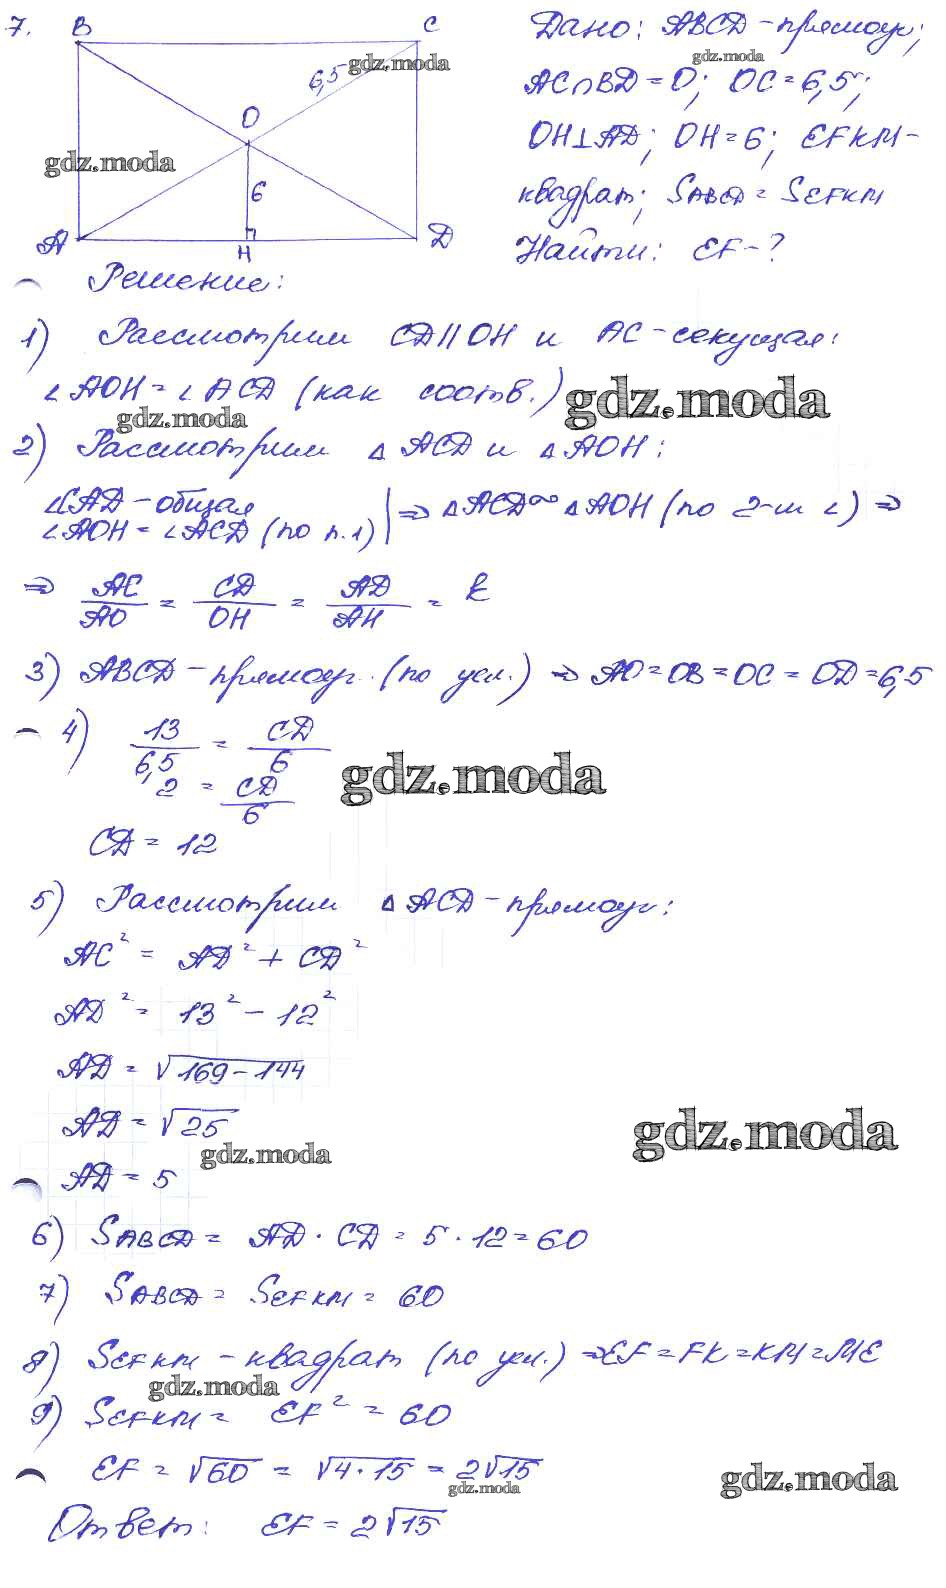 7. B C
6,5
O
6
A H D
Дано: ABCD - прямоуг;
AC∩BD = O; OC = 6,5;
OH⊥AD; OH = 6; EFKM -
квадрат; SABCD = SEFKM
Найти: EF - ?
Решение:
1) Рассмотрим CD || OH и AC - секущая:
∠AOH = ∠ACD (как соотв.)
2) Рассмотрим △ACD и △AOH:
∠CAD - общая
∠AOH = ∠ACD (по п.1) | ⇒ △ACD ∞ △AOH (по 2-м ∠) ⇒
⇒ AC/AO = CD/OH = AD/AH = k
3) ABCD - прямоуг. (по усл.) ⇒ AO = OB = OC = OD = 6,5
4) 13/6,5 = CD/6
2 = CD/6
CD = 12
5) Рассмотрим △ACD - прямоуг:
AC² = AD² + CD²
AD² = 13² - 12²
AD = √169 - 144
AD = √25
AD = 5
6) SABCD = AD · CD = 5 · 12 = 60
7) SABCD = SEFKM = 60
8) SEFKM - квадрат (по усл.) ⇒ EF = FK = KM = ME
9) SEFKM = EF² = 60
EF = √60 = √4 · 15 = 2√15
Ответ: EF = 2√15
gdz.moda
gdz.moda
gdz.moda
gdz.moda
gdz.moda
gdz.moda
gdz.moda
gdz.moda
gdz.moda
gdz.moda
gdz.moda